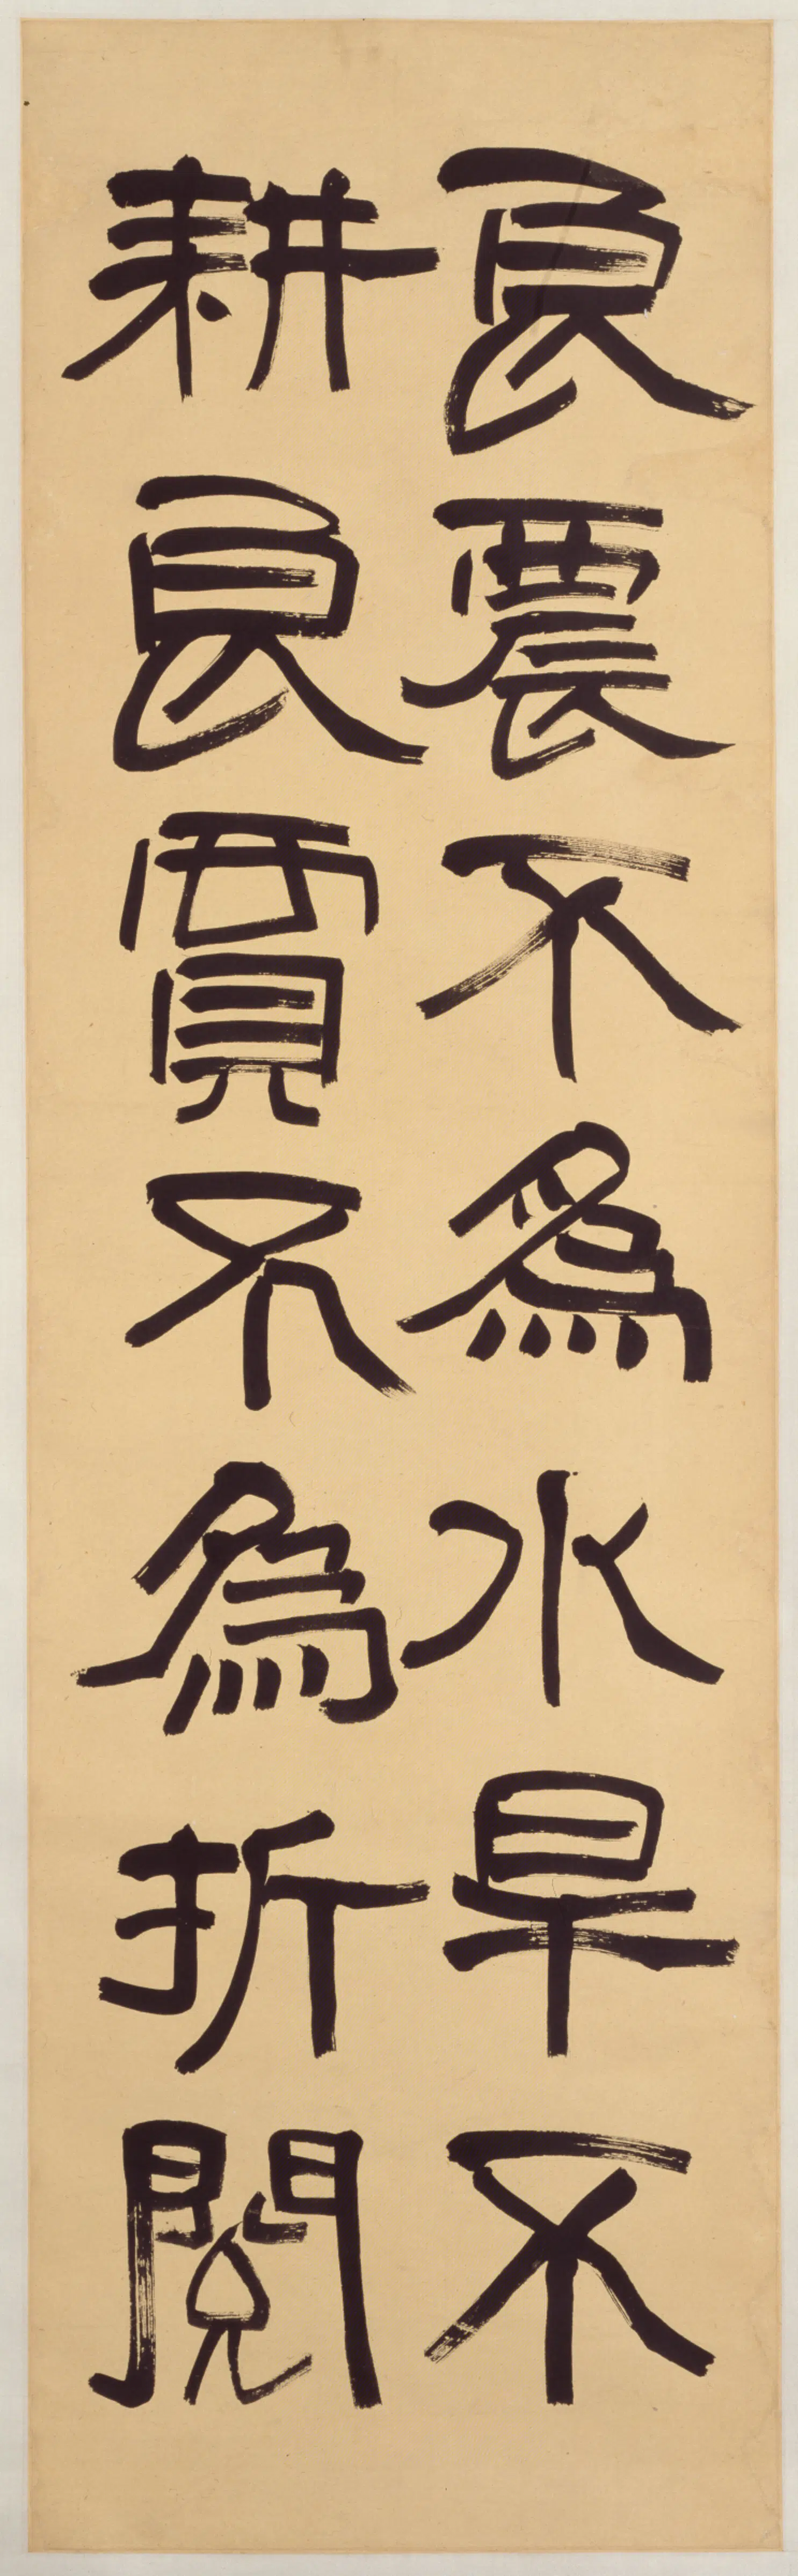 良農不為水旱不
耕良賈不為折閱